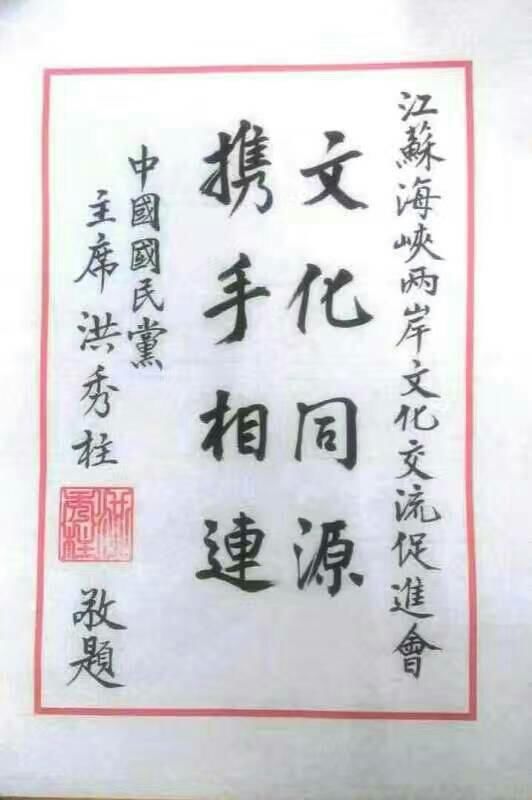 江蘇海峽兩岸文化交流促進會
文化同源
携手相連
中國國民黨
主席洪秀柱
洪秀柱
敬題